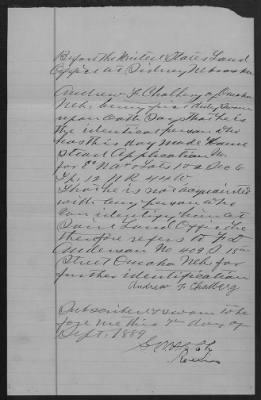 Before the United States Land
Office at Sidney Nebraska
Andrew F Chalberg of Omaha
Neb. being first duly sworn
upon oath Say that he is
the identical person who
has this day made Home
stead Application No.
for E½ NW¼ Lots 1 & 2 Sec 6
Tp. 12 N R 44 W
That he is not acquainted
with any person who
can identify him at
said Land Office. He
therefore refers to
Anderson No 408 15th
Street Omaha Neb. for
further identification
Andrew F Chalberg
Subscribed & sworn to be
fore me this day of
Sept. 1889